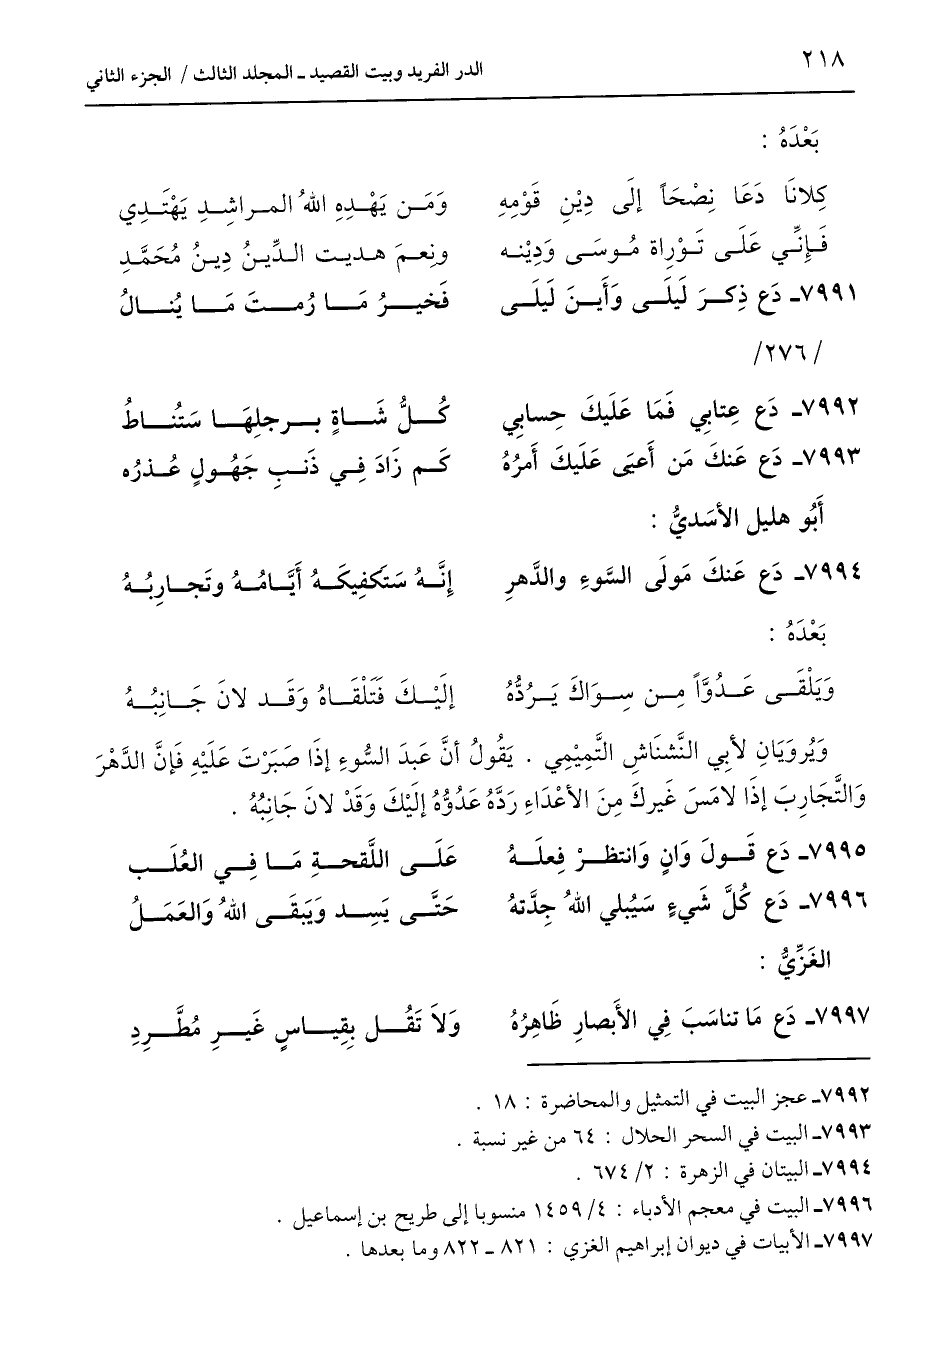 ٢١٨ الدر الفريد وبيت القصيد ـ المجلد الثالث / الجزء الثاني
بَعْدَهُ :
كِلانَا دَعَا نِصْحَاً إلَى دِيْنِ قَوْمِهِ وَمَـن يَهْـدِهِ اللهُ المـراشِـدِ يَهْتَـدِي
فَـإنِّـي عَلَـى تَـوْراة مُـوسَـى وَدِيْنِـه ونِعـمَ هـديـت الـدِّيـنُ دِيـنُ مُحَمَّـدِ
٧٩٩١ـ دَع ذِكـرَ لَيلَـى وَأَيـنَ لَيلَـى فَخَيـرُ مَـا رُمـتَ مَـا يُنـالُ
/٢٧٦/
٧٩٩٢ـ دَع عِتابي فَمَا عَلَيكَ حِسابي كُـلُّ شَـاةٍ بـرجلِهَـا سَتُنـاطُ
٧٩٩٣ـ دَع عَنكَ مَن أَعيَى عَلَيكَ أمرُهُ كَـم زَادَ فِـي ذَنـبِ جَهُـولٍ عُـذرُه
أَبُو هليل الأسَديُّ :
٧٩٩٤ـ دَع عَنكَ مَولَى السَّوءِ والدَّهرِ إنَّـهُ سَتَكفِيكَـهُ أيَّـامُـهُ وتَجـارِبُـهُ
بَعْدَهُ :
وَيَلْقَـى عَـدُوَّاً مِـن سِـوَاكَ يَـرُدُّهُ إلَيْـكَ فَتَلْقَـاهُ وَقَـد لانَ جَـانِبُـهُ
وَيُروَيَانِ لأبي النَّشنَاشِ التَّمِيْمِي . يَقُولُ أنَّ عَبدَ السُّوءِ إذَا صَبَرْتَ عَلَيْهِ فَإنَّ الدَّهْرَ
وَالتَّجَارِبَ إذَا لامَسَ غَيركَ مِنَ الأعْدَاءِ رَدَّهُ عَدُوُّهُ إلَيْكَ وَقَدْ لانَ جَانِبُهُ .
٧٩٩٥ـ دَع قَـولَ وَانٍ وَانتظـرْ فِعلَـهُ عَلَـى اللَّقحَـةِ مَـا فِـي العُلَـب
٧٩٩٦ـ دَع كُلَّ شَيءٍ سَيُبلي اللهُ جِدَّتهُ حَتَّـى يَسِـد وَيَبقَـى اللهُ وَالعَمَـلُ
الغَزِّيُّ :
٧٩٩٧ـ دَع مَا تناسَبَ فِي الأَبصارِ ظَاهِرُهُ وَلاَ تَقُـل بِقِيـاسٍ غَيـرِ مُطَّـردِ
٧٩٩٢ـ عجز البيت في التمثيل والمحاضرة : ١٨ .
٧٩٩٣ـ البيت في السحر الحلال : ٦٤ من غير نسبة .
٧٩٩٤ـ البيتان في الزهرة : ٢/ ٦٧٤ .
٧٩٩٦ـ البيت في معجم الأدباء : ٤/ ١٤٥٩ منسوبا إلى طريح بن إسماعيل .
٧٩٩٧ـ الأبيات في ديوان إبراهيم الغزي : ٨٢١ ـ ٨٢٢ وما بعدها .